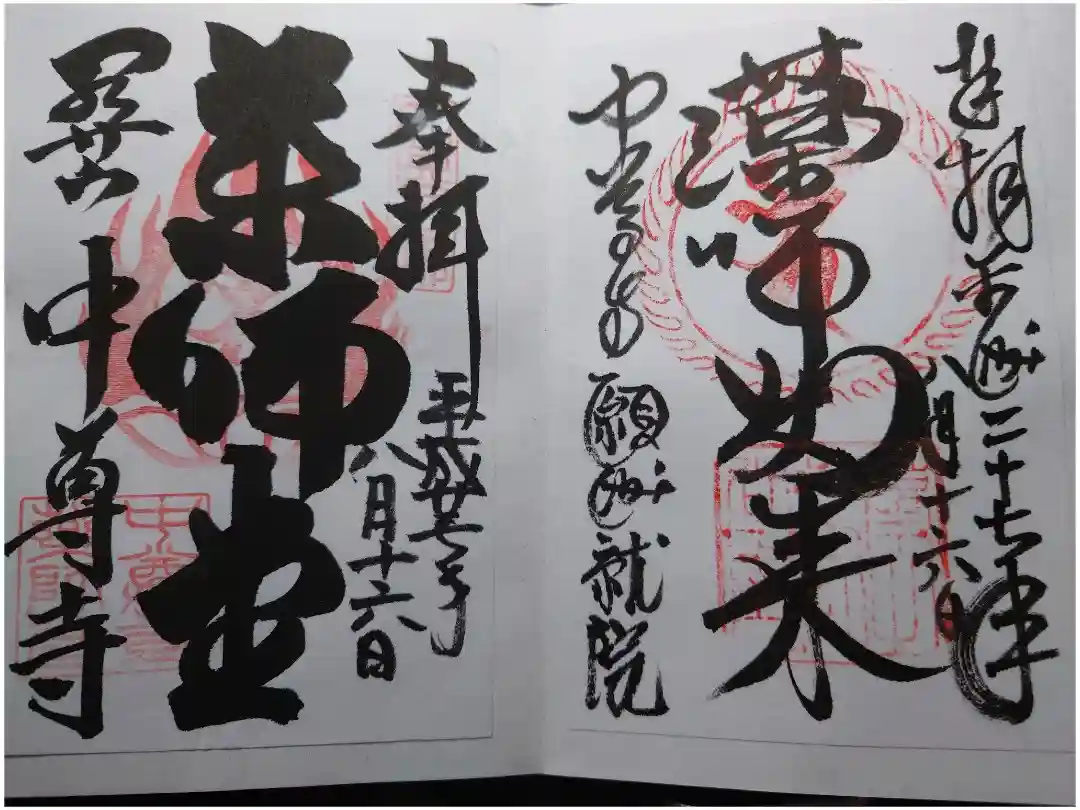 奉拝 平成二十七年
八月十六日
薬師如来
中尊寺 願成就院
奉拝 平成廿七年
八月十六日
薬師堂
関山 中尊寺